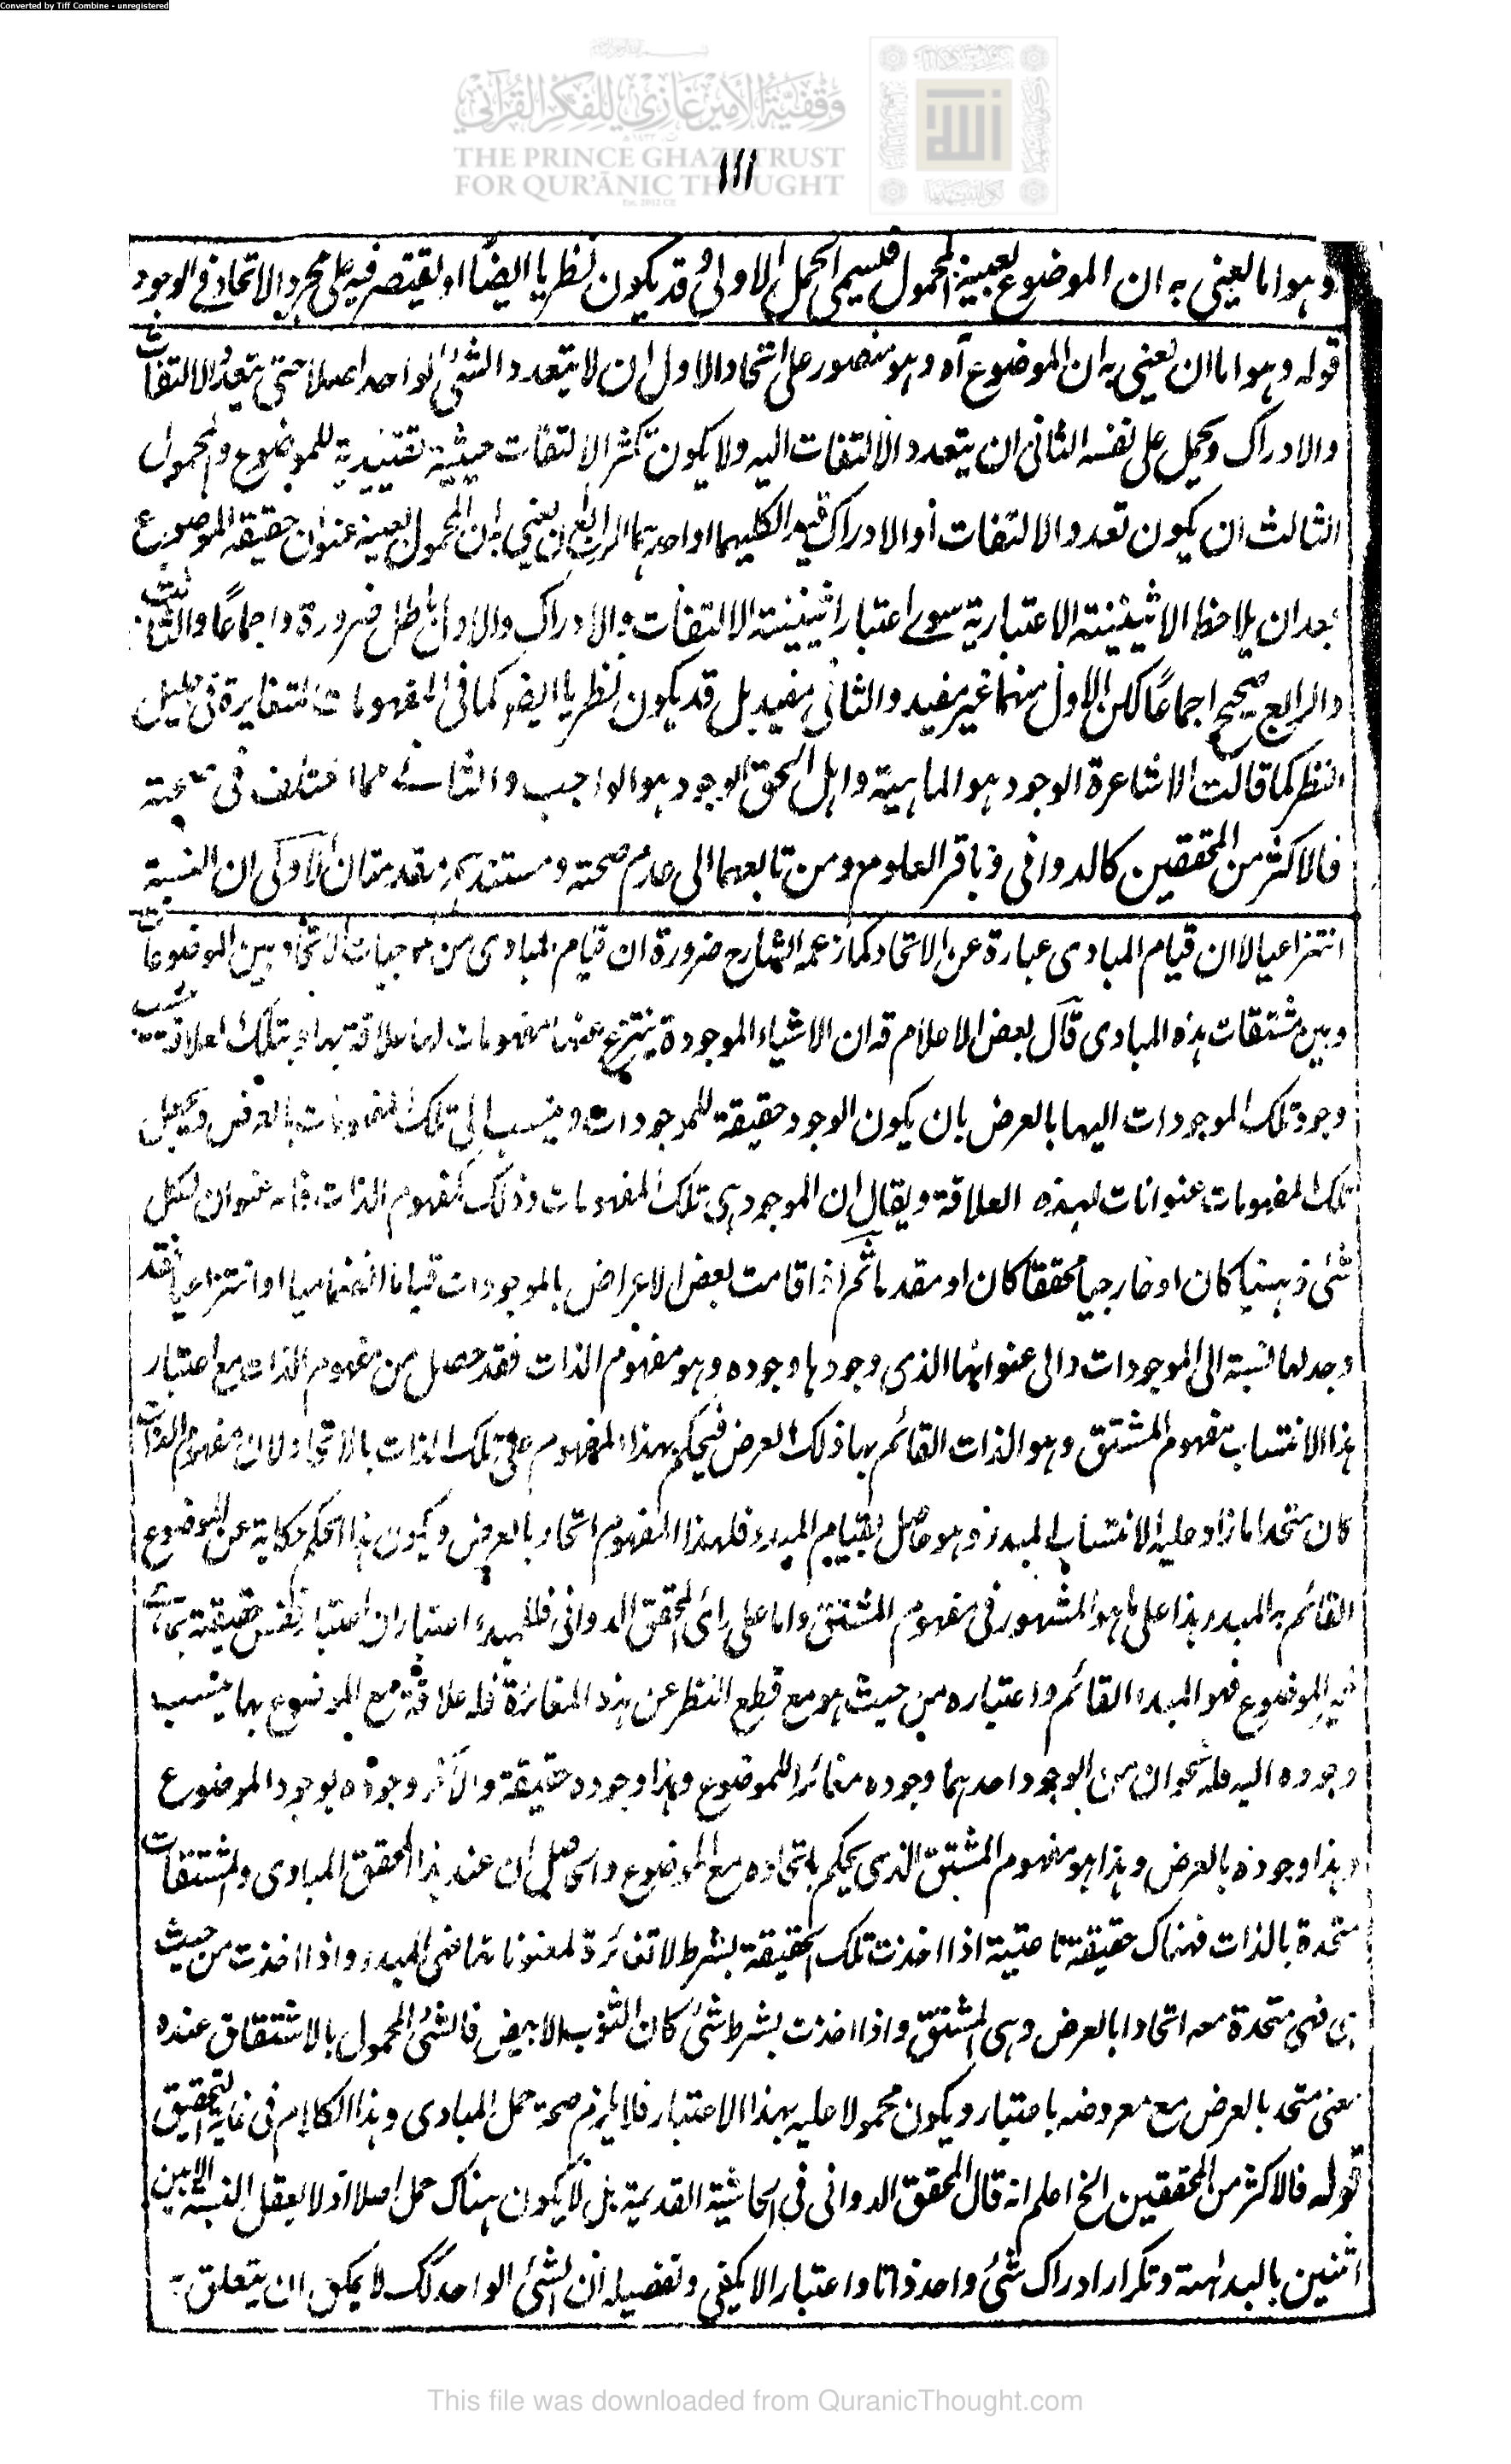 Converted by Tiff Combine - unregistered
وقفية الأمير غازي للفكر القرآني
THE PRINCE GHAZI TRUST
FOR QUR'ĀNIC THOUGHT
١١١
وهو اما ليعنى به ان الموضوع بعينه المحمول فليسمى الحمل الاولى وقد يكون نظريا ايضا او يقتصر فيه على مجرد الاتحاد فى الوجود
قوله وهو اما ان يعنى به ان الموضوع آه وهو متصور على انحاء الاول ان لا يتعدد الشئ الواحد اصلا حتى يتعدد الالتفات
والادراك ويحمل على نفسه الثانى ان يتعدد الالتفات اليه ولا يكون تكثر الالتفات حيثية تقييدية للموضوع والمحمول
الثالث ان يكون تعدد الالتفات او الادراك قيدا لكليهما او احدهما الرابع ان يعنى به ان المحمول بعينه عنوان حقيقة الموضوع
بعد ان يلاحظ الاثنينية الاعتبارية سوى اعتبار اثنينية الالتفات والادراك والاول باطل ضرورة واجماعا والثالث
والرابع صحيح اجماعا لكن الاول منهما غير مفيد والثانى مفيد بل قد يكون نظريا ايضا كما فى المفهومات المتغايرة فى جليل
النظر كما قالت الاشاعرة الوجود هو الماهية واهل الحق الوجود هو الواجب والثانى مما اختلف فى صحته
فالاكثر من المحققين كالدوانى وباقر العلوم ومن تابعهما الى عدم صحته ومستندهم مقدمتان الاولى ان النسبة
انتزاعيا لا ان قيام المبادى عبارة عن الاتحاد كما زعمه الشارح ضرورة ان قيام المبادى من موجبات الاتحاد بين الموضوعات
وبين مشتقات هذه المبادى قال بعض الاعلام قه ان الاشياء الموجودة ينتزع عنها مفهومات لها علاقة بها وبتلك العلاقة ينسب
وجود تلك الموجودات اليها بالعرض بان يكون الوجود حقيقة للموجودات وينسب الى تلك المفهومات بالعرض ويجعل
تلك المفهومات عنوانات لهذه العلاقة ويقال ان الموجود هى تلك المفهومات وذلك كمفهوم الذات فانه عنوان لكل
شئ ذهنيا كان او خارجيا محققا كان او مقدرا ثم اذا قامت بعض الاعراض بالموجودات قياما انضماميا او انتزاعيا فقد
وجد لها نسبة الى الموجودات والى عنوانها الذى وجودها وجوده وهو مفهوم الذات فقد حصل من مفهوم الذات مع اعتبار
هذا الانتساب مفهوم المشتق وهو الذات القائم بها ذلك العرض فيحكم بهذا المفهوم على تلك الذات بالاتحاد لان مفهوم الذات
كان متحدا ما زاد عليه الا انتساب المبدء وهو حاصل بقيام المبدء فلهذا المفهوم اتحاد بالعرض ويكون هذا الحكم حكاية عن الموضوع
القائم به المبدء هذا على ما هو المشهور فى مفهوم المشتق واما على رأى المحقق الدوانى فللمبدء اعتباران اعتبار نفس حقيقته
الموضوع فهو المبدء القائم واعتباره من حيث هو مع قطع النظر عن هذه المغائرة فله علاقة مع الموضوع بها ينسب
وجوده اليه فله نحوان من الوجود احدهما وجوده مغائرا للموضوع وهذا وجوده حقيقة والآخر وجوده بوجود الموضوع
وهذا وجوده بالعرض وهذا هو مفهوم المشتق الذى يحكم باتحاده مع الموضوع والحاصل ان عند هذا المحقق المبادى والمشتقات
متحدة بالذات فهناك حقيقة ناعتية اذا اخذت تلك الحقيقة بشرط لا تغائرة لمعنوناتها فهى المبدء واذا اخذت من حيث
هى فهى متحدة معه اتحادا بالعرض وهى المشتق واذا اخذت بشرط شئ كان الثوب الابيض فالشئ المحمول بالاشتقاق عنده
معنى متحد بالعرض مع معروضه باعتبار ويكون محمولا عليه بهذا الاعتبار فلا يلزم صحة حمل المبادى وهذا الكلام فى غاية التحقيق
قوله فالاكثر من المحققين الخ اعلم انه قال المحقق الدوانى فى الحاشية القديمة بل لا يكون هناك حمل اصلا اذ لا يعقل النسبة الا بين
اثنين بالبداهة وتكرار ادراك شئ واحد ذاتا واعتبارا لا يكفى وتفصيله ان الشئ الواحد كك لا يمكن ان يتعلق به
This file was downloaded from QuranicThought.com